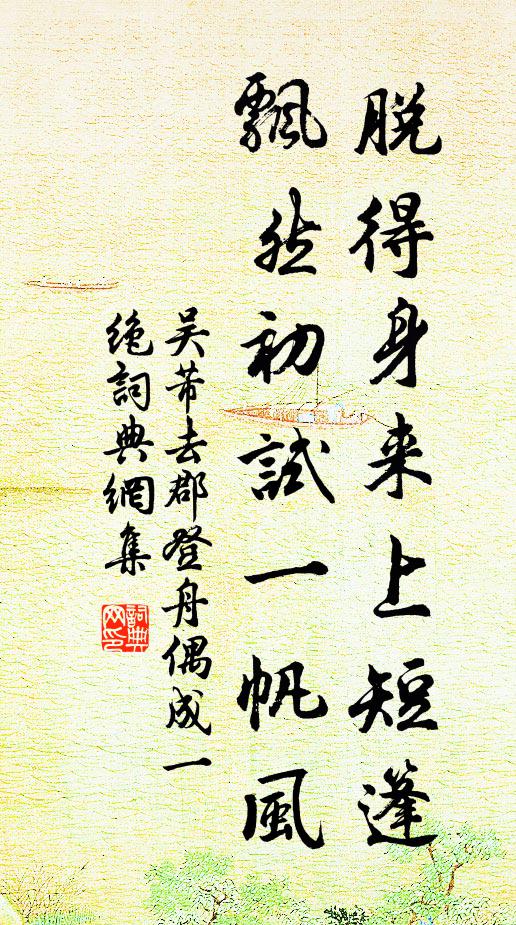 脱得身来上短篷
飄然初試一帆風
吴芾去郡登舟偶成一
绝詞典網集
詞典
网印